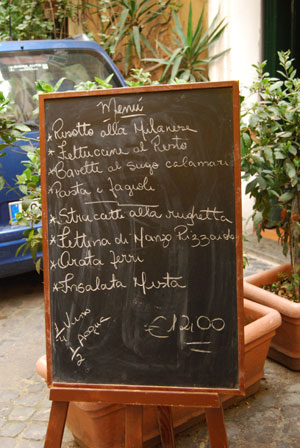 Menú
*Risotto alla Milanese
*Fettuccine al Pesto
*Bavette al sugo calamari
*Pasta e fagioli
*Straccetti alla rughetta
*Fettina di Manzo Pizzaiola
*Orata ferri
*Insalata Mista
1/4 Vino
1/2 Acqua
€12,00